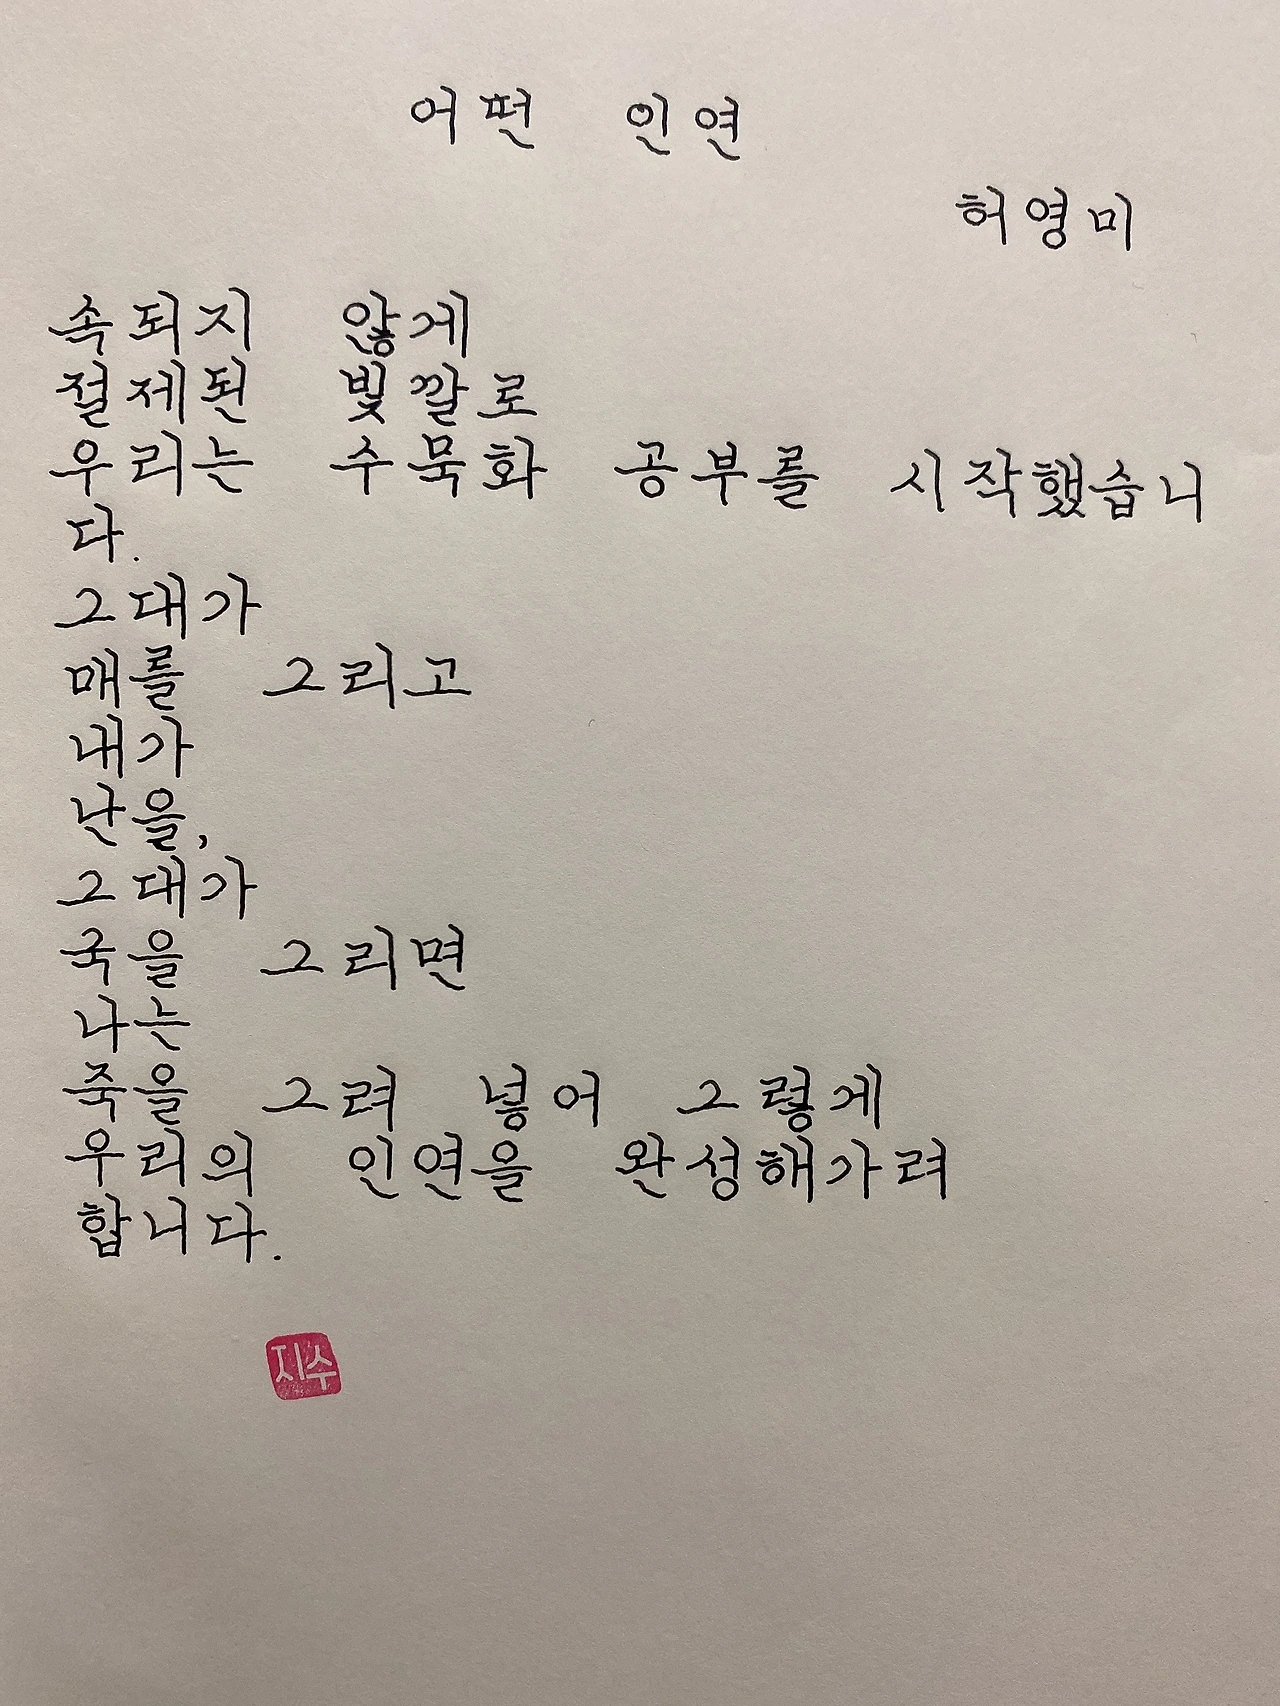 어떤 인연
허영미
속되지 않게
절제된 빛깔로
우리는 수묵화 공부를 시작했습니
다.
그대가
매를 그리고
내가
난을,
그대가
국을 그리면
나는
죽을 그려 넣어 그렇게
우리의 인연을 완성해가려
합니다.
지수